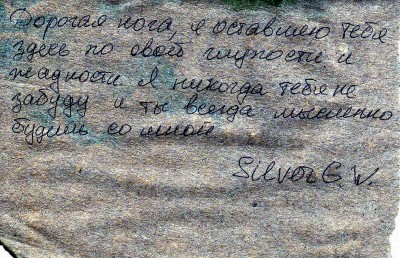 Дорогая нога, я оставляю тебя
здесь по своей глупости и
жадности. Я никогда тебя не
забуду и ты всегда мысленно
будешь со мной
Silver G. W.